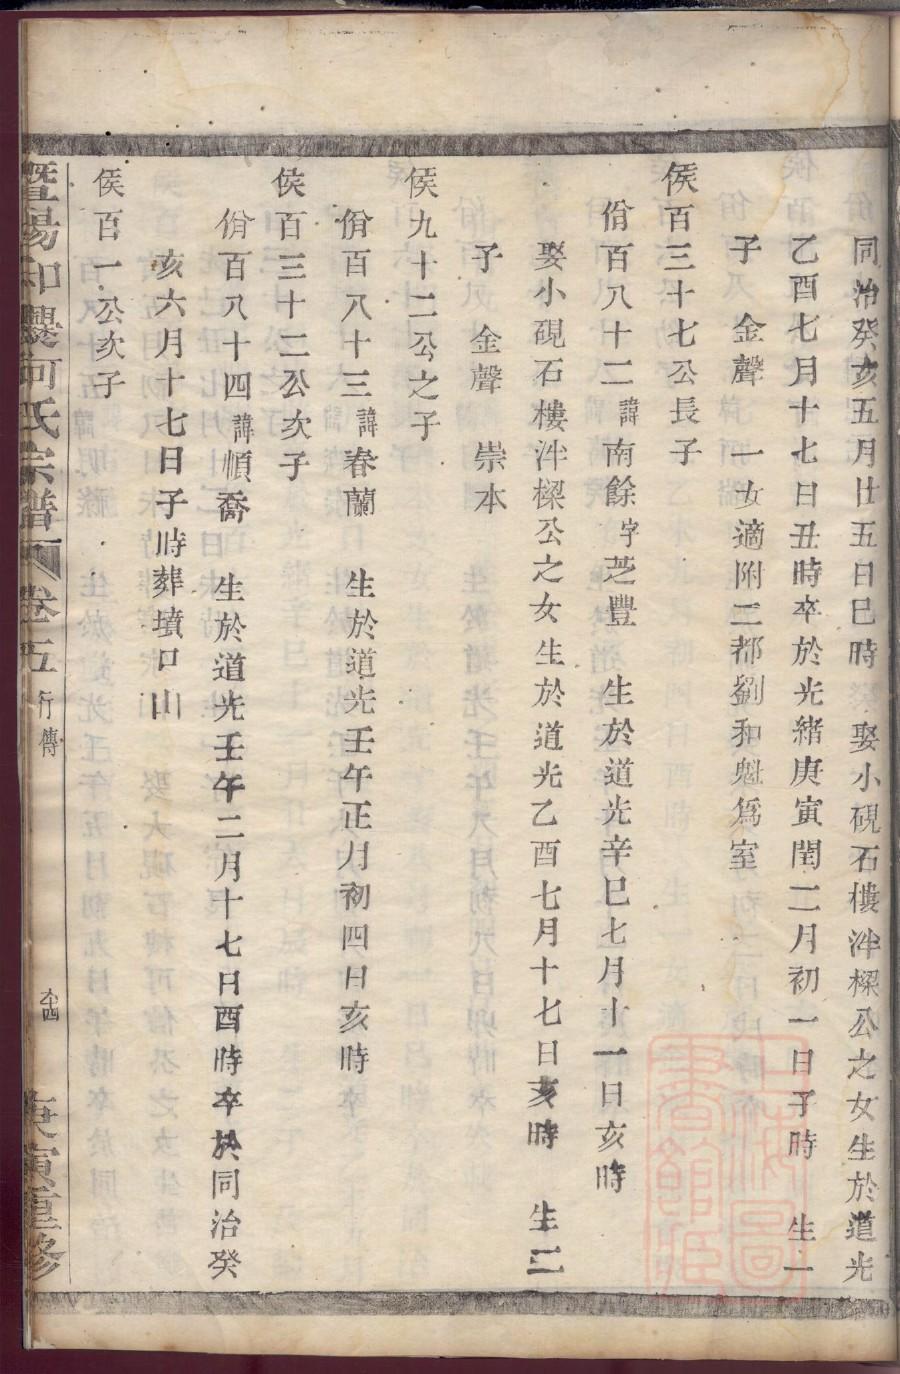 同治癸亥五月廿五日巳時　娶小硯石樓泮樑公之女生於道光
乙酉七月十七日丑時卒於光緒庚寅閏二月初一日子時　生一
子　金聲　一女適附二都劉和魁為室
侯百三十七公長子
佾百八十二諱南餘字芝豐　生於道光辛巳七月十一日亥時
娶小硯石樓泮樑公之女生於道光乙酉七月十七日亥時　生二
子　金聲　崇本
侯九十二公之子
佾百八十三諱春蘭　生於道光壬午正月初四日亥時
侯百三十二公次子
佾百八十四諱順喬　生於道光壬午二月十七日酉時卒於同治癸
亥六月十七日子時葬墳口山
侯百一公次子
暨陽和何氏宗譜　卷五　行傳　庚寅重修